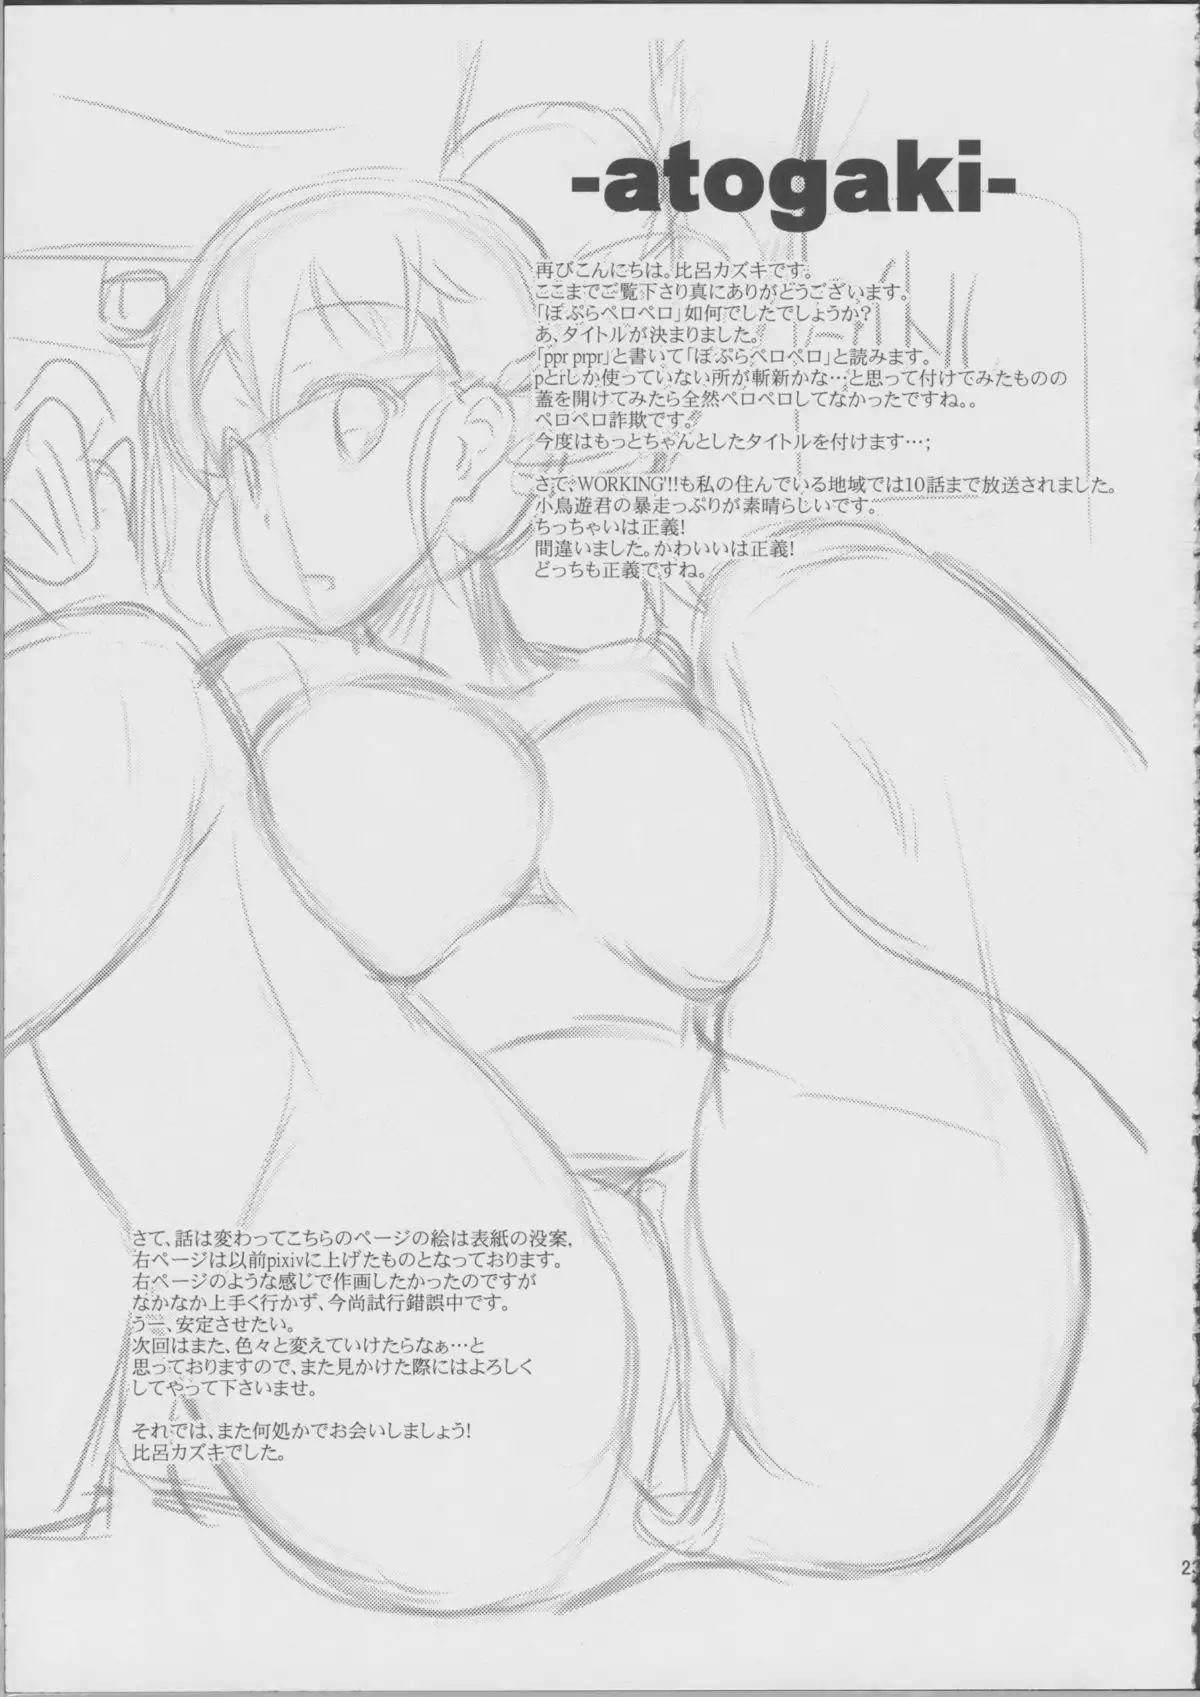 -atogaki-
再びこんにちは。比呂カズキです。
ここまでご覧下さり真にありがとうございます。
「ぽぷらペロペロ」如何でしたでしょうか?
あ、タイトルが決まりました。
「ppr prpr」と書いて「ぽぷらペロペロ」と読みます。
pとrしか使っていない所が斬新かな…と思って付けてみたものの
蓋を開けてみたら全然ペロペロしてなかったですね。。
ペロペロ詐欺です。
今度はもっとちゃんとしたタイトルを付けます…;
さて、WORKING'!!も私の住んでいる地域では10話まで放送されました。
小鳥遊君の暴走っぷりが素晴らしいです。
ちっちゃいは正義!
間違いました。かわいいは正義!
どっちも正義ですね。
さて、話は変わってこちらのページの絵は表紙の没案,
右ページは以前pixivに上げたものとなっております。
右ページのような感じで作画したかったのですが
なかなか上手く行かず、今尚試行錯誤中です。
うー、安定させたい。
次回はまた、色々と変えていけたらなぁ…と
思っておりますので、また見かけた際にはよろしく
してやって下さいませ。
それでは、また何処かでお会いしましょう!
比呂カズキでした。
23